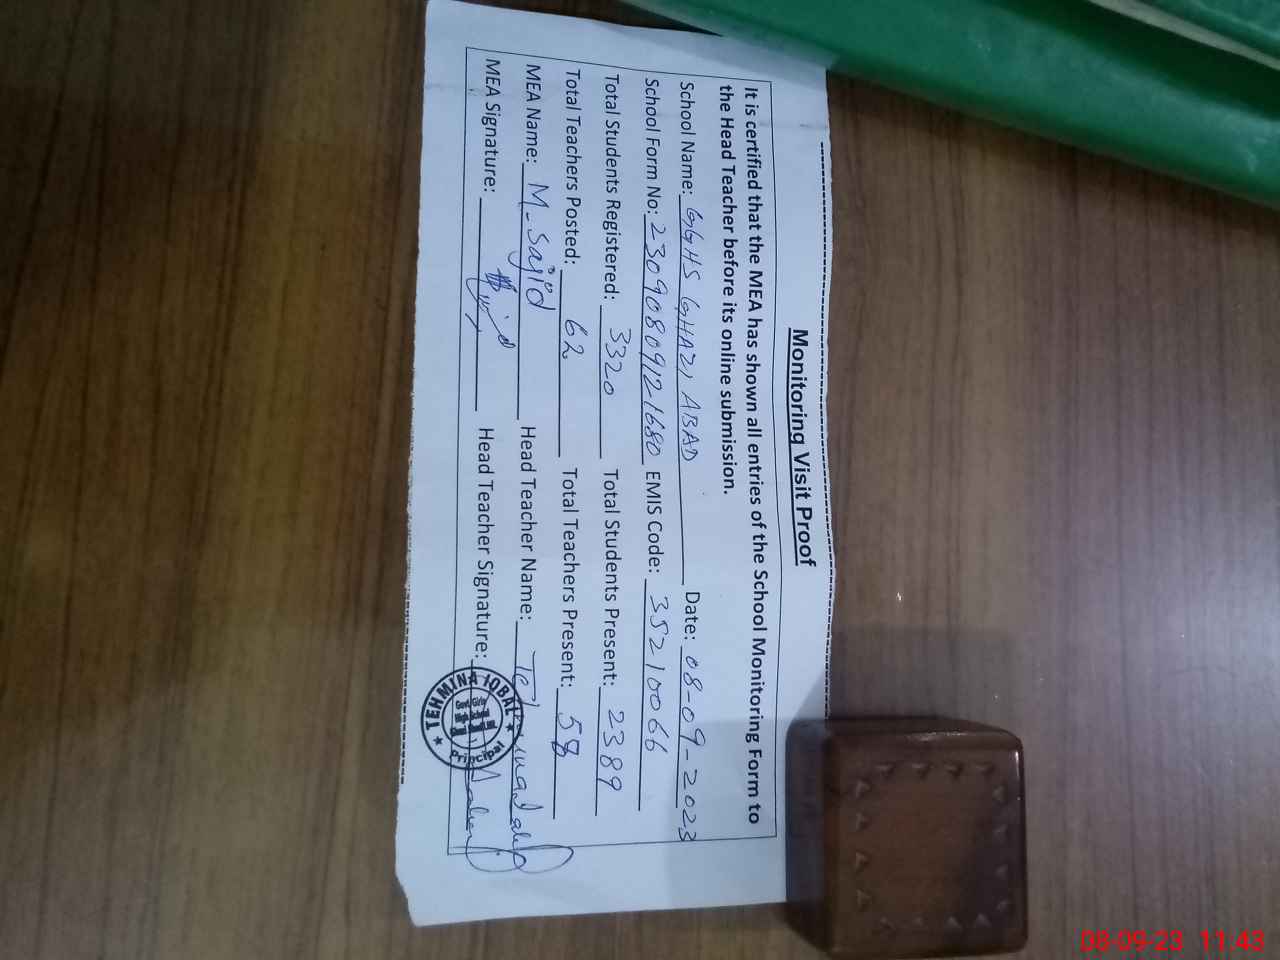 Monitoring Visit Proof
It is certified that the MEA has shown all entries of the School Monitoring Form to
the Head Teacher before its online submission.
School Name: GGHS GHAZI ABAD Date: 08-09-2023
School Form No: 23090809121680 EMIS Code: 35210066
Total Students Registered: 3320 Total Students Present: 2389
Total Teachers Posted: 62 Total Teachers Present: 58
MEA Name: M. Sajid Head Teacher Name:
MEA Signature: Head Teacher Signature:
TEHMINA IQBAL
Govt. Girls
High School
Principal
08-09-23 11:43